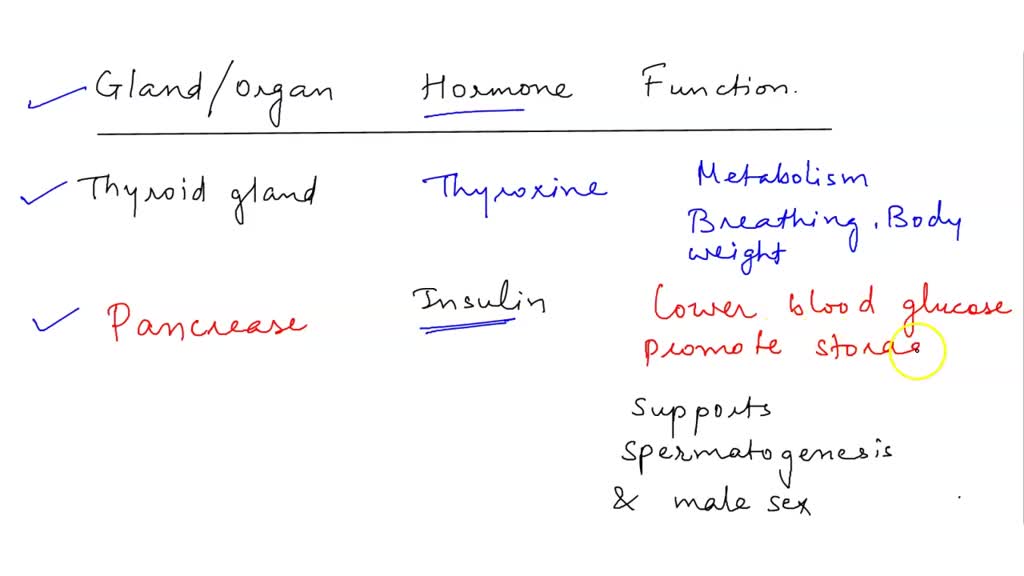 Gland/organ Hormone Function.
Thyroid gland Thyroxine Metabolism
Breathing, Body
weight
Pancrease Insulin Lower blood glucose
promote
supports
spermatogenesis
& male sex